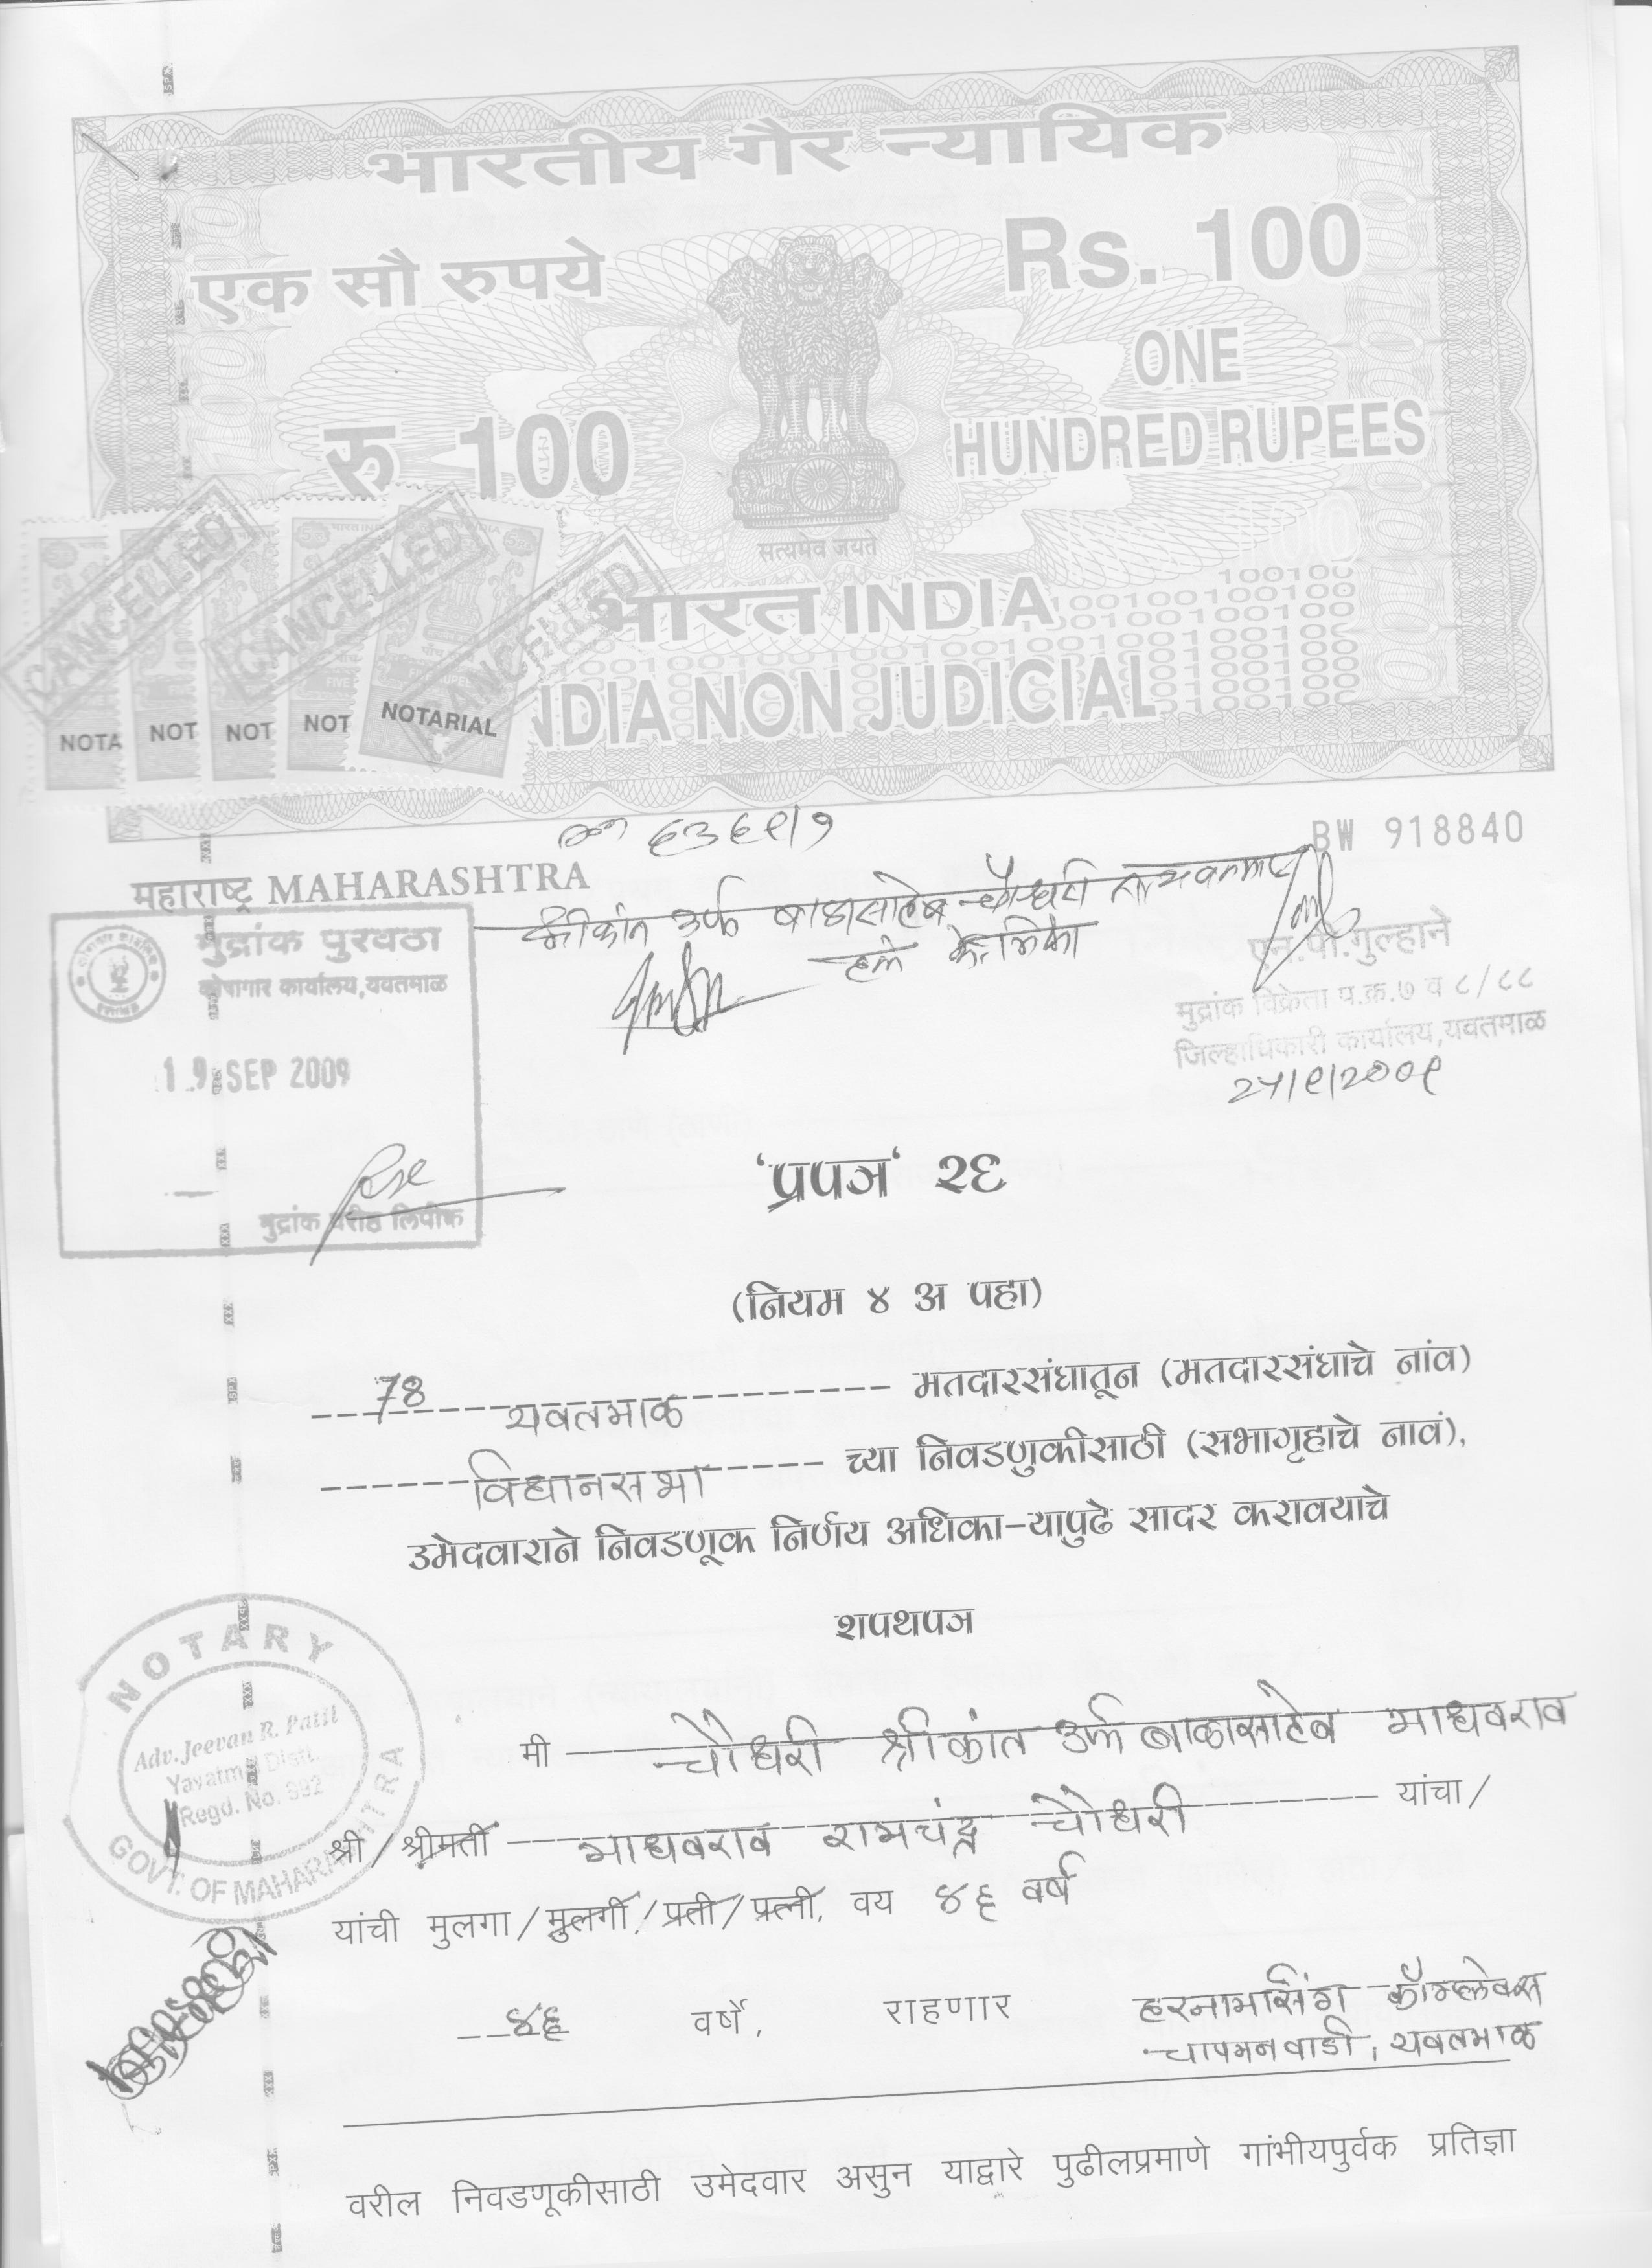 भारतीय गैर न्यायिक
एक सौ रुपये
Rs. 100
ONE
HUNDRED RUPEES
रु 100
सत्यमेव जयते
भारत INDIA
INDIA NON JUDICIAL
CANCELLED
CANCELLED
CANCELLED
NOTA NOT NOT NOT NOTARIAL
६३६९/१
BW 918840
महाराष्ट्र MAHARASHTRA
श्रीकांत उर्फ बाळासाहेब चौधरी
मुद्रांक पुरवठा
कोषागार कार्यालय,यवतमाळ
19 SEP 2009
मुद्रांक वरीष्ठ लिपीक
एन.पी.गुल्हाने
मुद्रांक विक्रेता प.क्र.७ व ८/८८
जिल्हाधिकारी कार्यालय,यवतमाळ
२५/९/२००९
'प्रपत्र' २६
(नियम ४ अ पहा)
78 यवतमाळ मतदारसंघातून (मतदारसंघाचे नांव)
विधानसभा च्या निवडणुकीसाठी (सभागृहाचे नावं),
उमेदवाराने निवडणूक निर्णय अधिका-यापुढे सादर करावयाचे
शपथपत्र
NOTARY
Adv. Jeevan R. Patil
Yavatmal Distt.
Regd. No. 992
GOVT. OF MAHARASHTRA
मी चौधरी श्रीकांत उर्फ बाळासाहेब माधवराव
श्री/श्रीमती माधवराव रामचंद्र चौधरी यांचा/
यांची मुलगा/मुलगी/प्रती/पत्नी, वय ४६ वर्ष
४६ वर्षे, राहणार हरनामसिंग कॉम्प्लेक्स
चापमनवाडी, यवतमाळ
वरील निवडणूकीसाठी उमेदवार असुन याद्वारे पुढीलप्रमाणे गांभीयपुर्वक प्रतिज्ञा